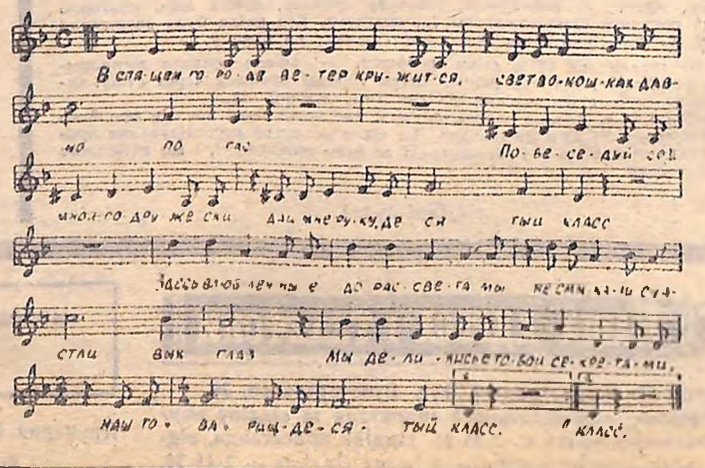 В спя-щем го-ро-де ве-тер кру-жит-ся, свет в о-кош-ках дав-
но по-гас По-бе-се-дуй со
мной по дру-же-ски дай мне ру-ку, де-ся-тый класс
Здесь влюб-лен-ны-е до рас-све-та мы не смы-ка-ли сча-
стли-вых глаз Мы де-ли-лись с то-бой се-кре-та-ми,
наш то-ва-рищ де-ся-тый класс. класс.